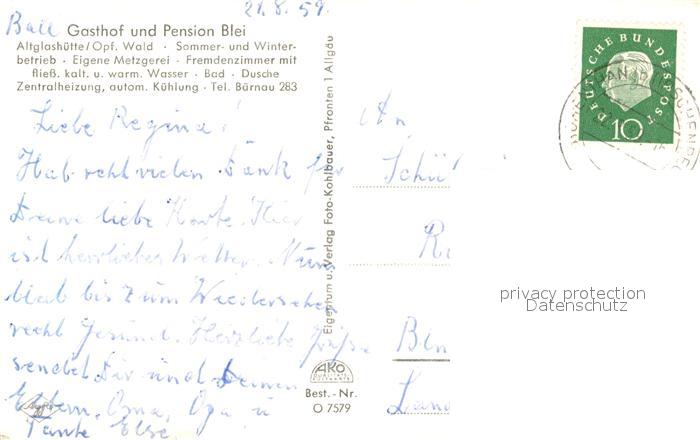 21.8.59
Gasthof und Pension Blei
Altglashütte/Opf. Wald · Sommer- und Winter-
betrieb · Eigene Metzgerei · Fremdenzimmer mit
fließ. kalt. u. warm. Wasser · Bad · Dusche
Zentralheizung, autom. Kühlung · Tel. Bärnau 283
Liebe Regina!
Hab recht vielen Dank für
Deine liebe Karte. Hier
ist herrliches Wetter. Nun
bleib bis zum Wiedersehen
recht gesund. Herzliche Grüße
sendet Dir und Deinen
Eltern, Oma, Opa u
Tante Else
Eigentum u. Verlag Foto-Kohlbauer, Pfronten 1 Allgäu
AKO
Best.-Nr.
O 7579
DEUTSCHE BUNDESPOST
10
An
Schü
R
Bln
Land
privacy protection
Datenschutz